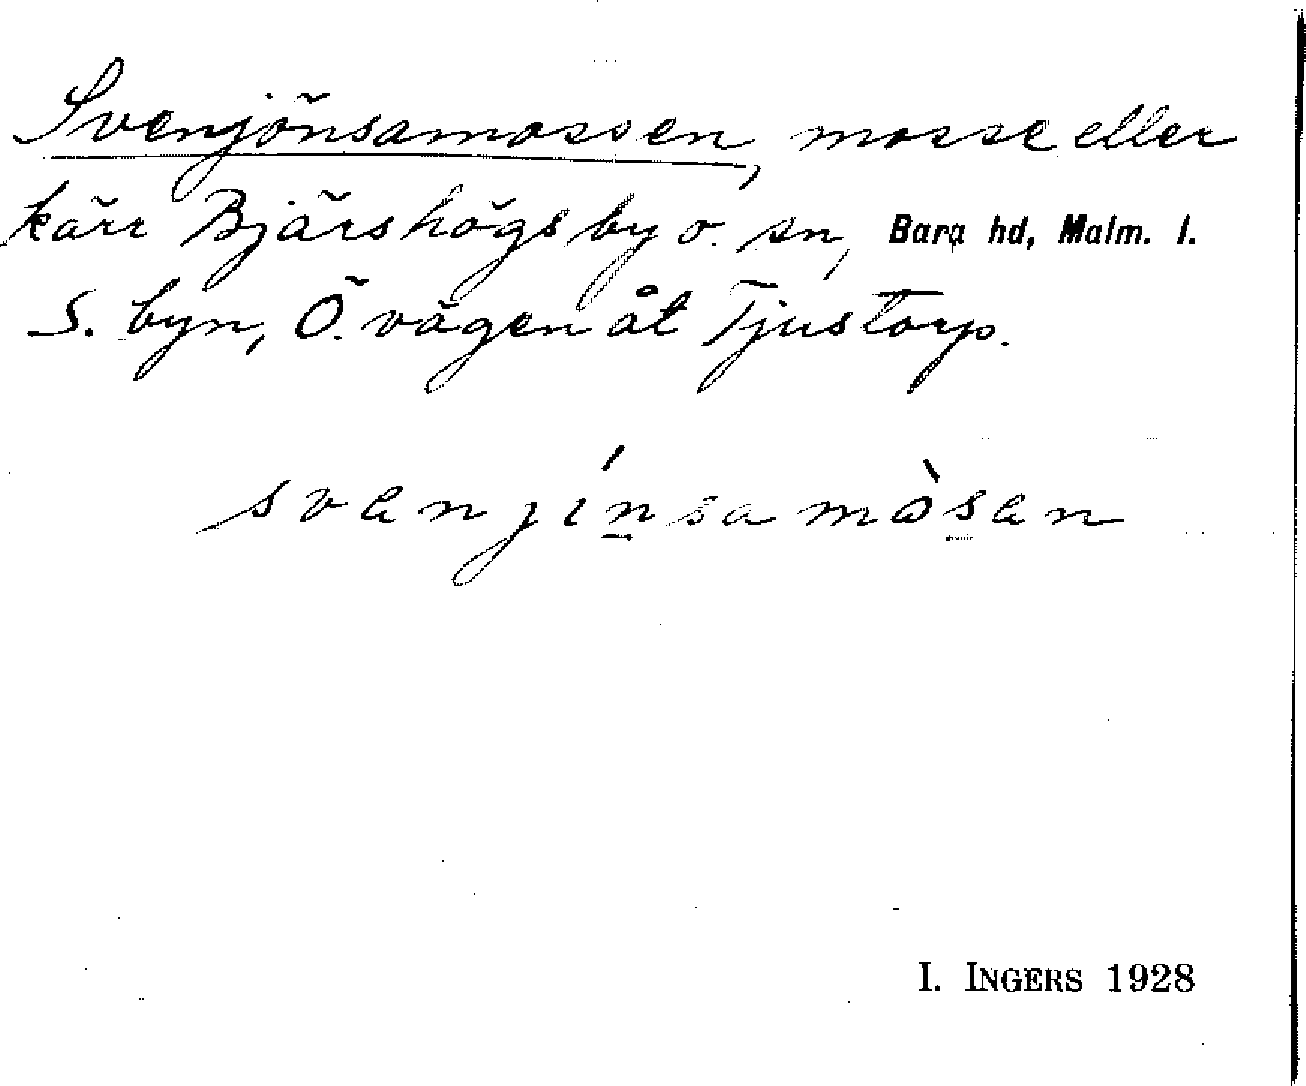 Svenjönsamossen, mosse eller
kärr Bjärshögs by o. sn, Bara hd, Malm. l.
S. byn, Ö. vägen åt Tjustorp.
svenjínsamòsen
I. INGERS 1928